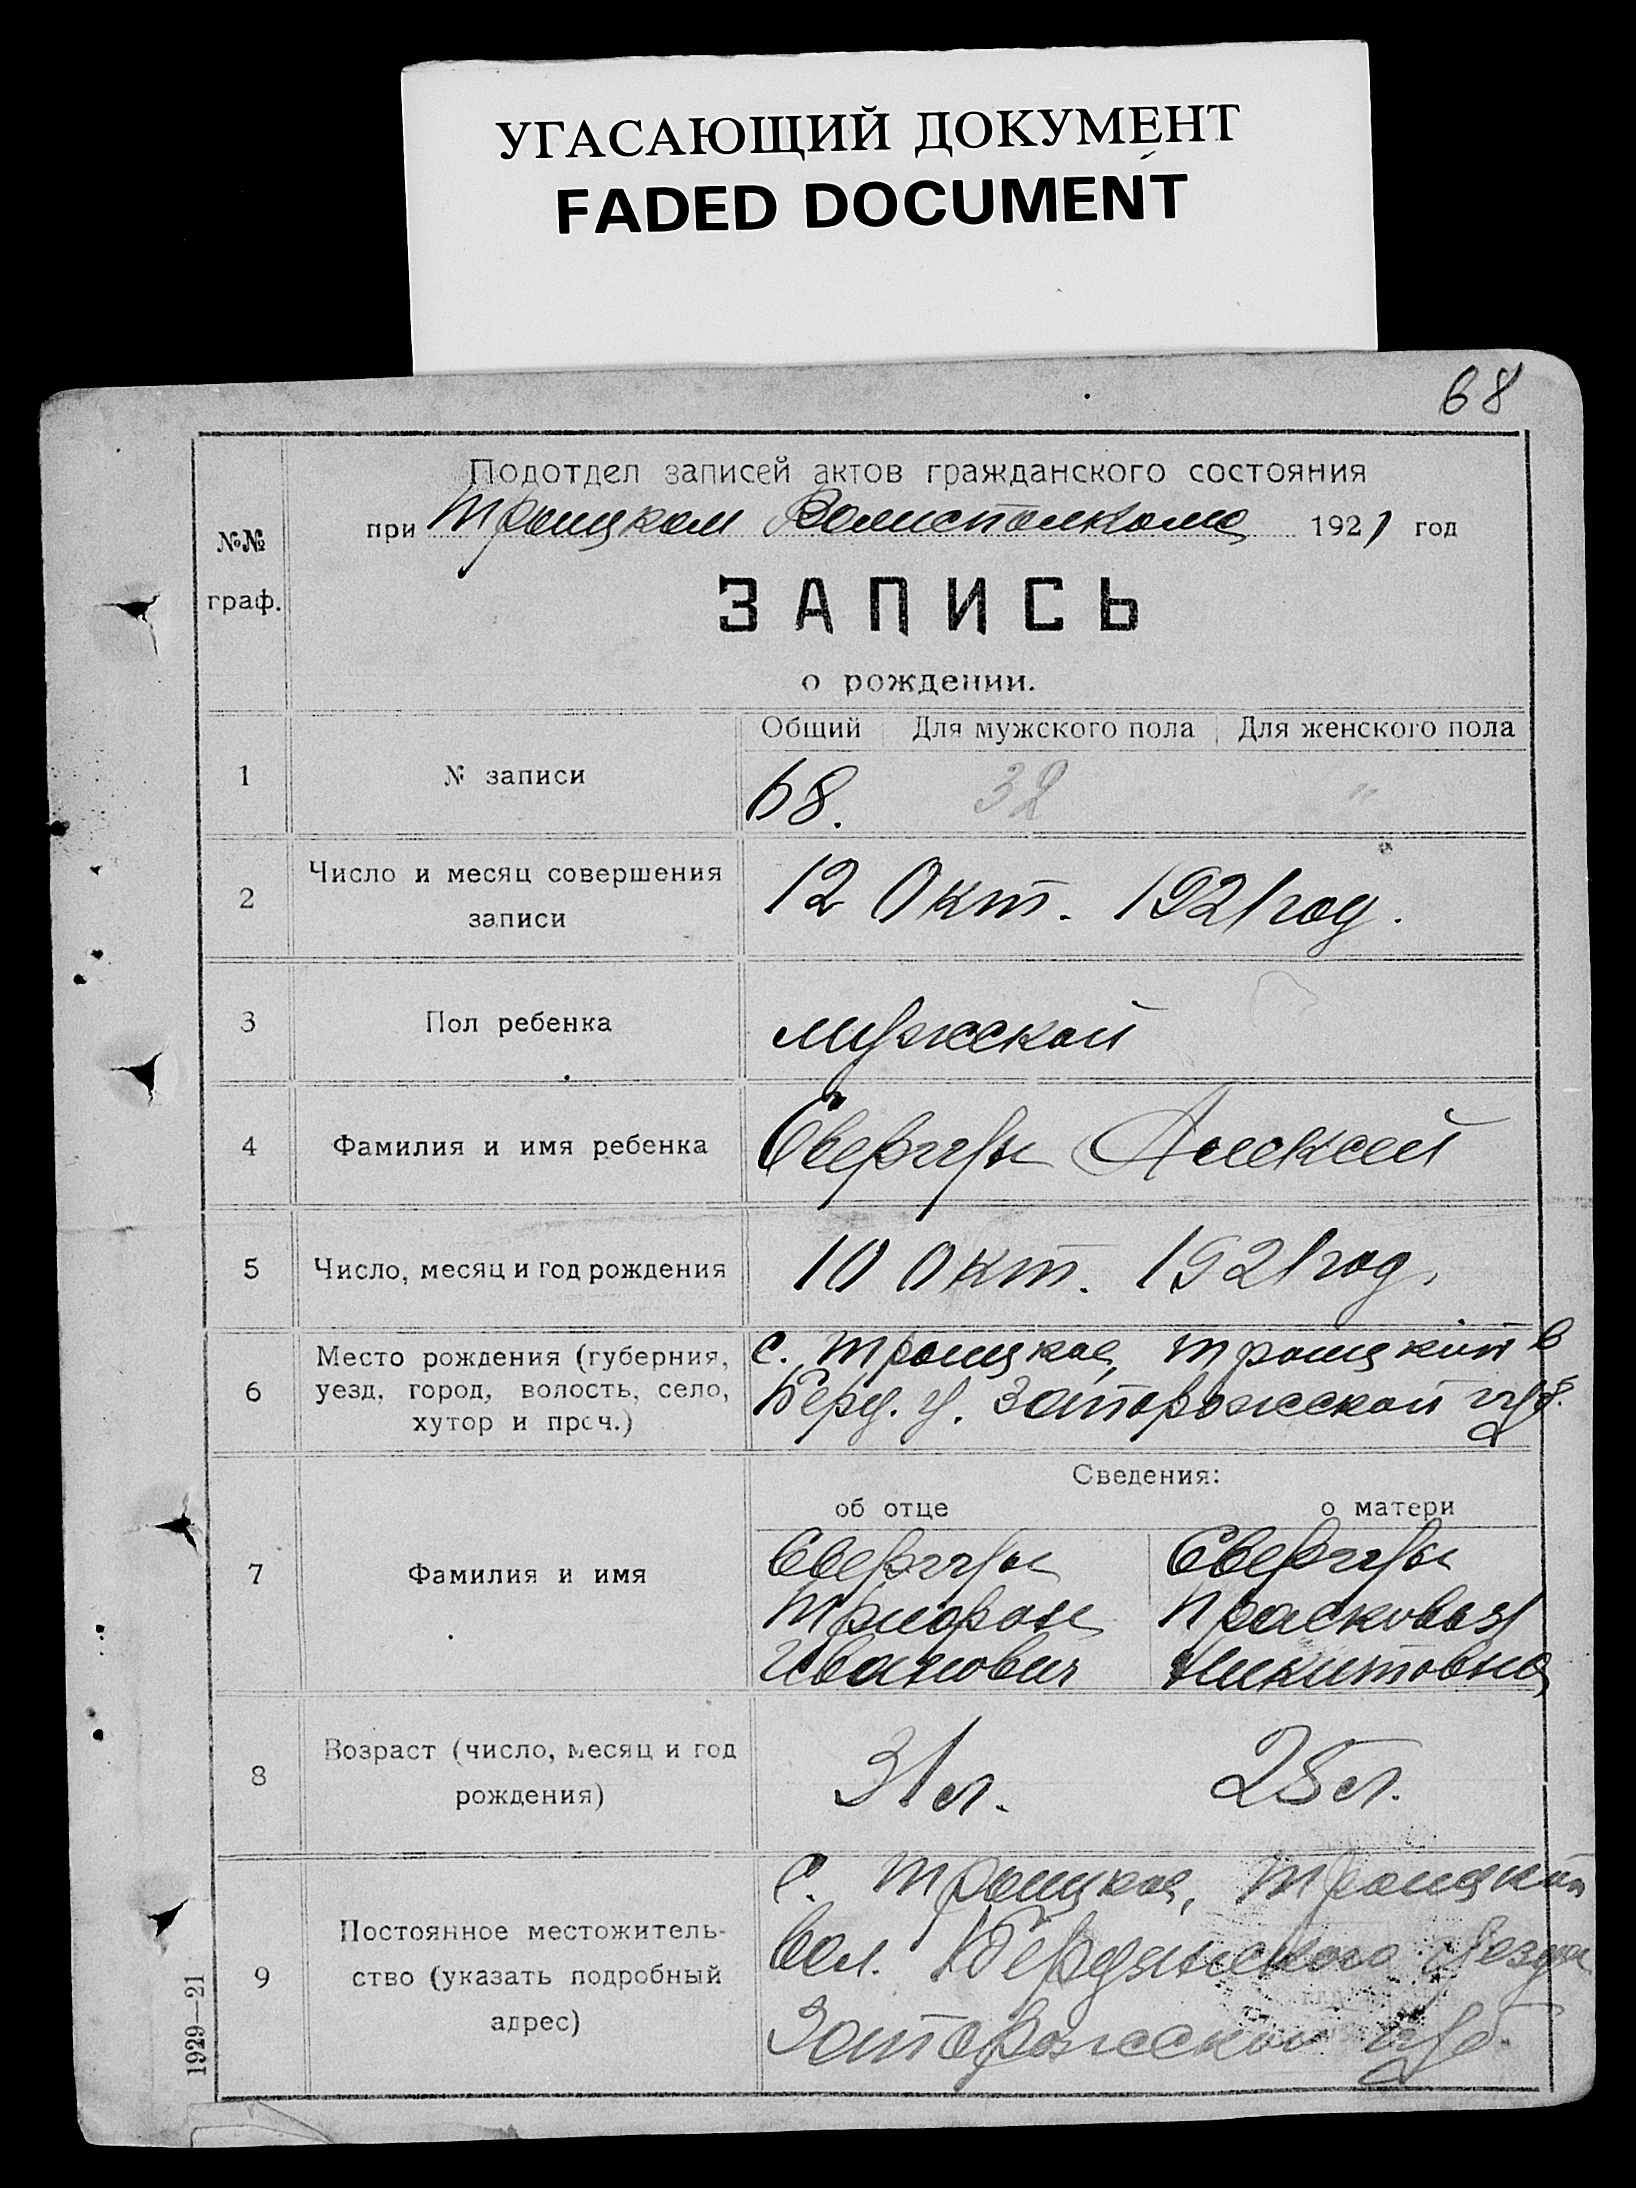 УГАСАЮЩИЙ ДОКУМЕНТ
FADED DOCUMENT
68
Подотдел записей актов гражданского состояния
при Троицком Волисполкома 1921 год
№№ граф.
ЗАПИСЬ
о рождении.
Общий Для мужского пола Для женского пола
1 № записи 68. 32 "
2 Число и месяц совершения
записи
12 Окт. 1921 год.
3 Пол ребенка мужской
4 Фамилия и имя ребенка Алексей
5 Число, месяц и год рождения 10 Окт. 1921 год.
6 Место рождения (губерния,
уезд, город, волость, село,
хутор и проч.)
с. Троицкое, Троицкой в
Берд. у. Запорожской губ.
Сведения:
об отце о матери
7 Фамилия и имя
Трифон Прасковья
Иванович Никитовна
8 Возраст (число, месяц и год
рождения)
31 л. 25 л.
9 Постоянное местожитель-
ство (указать подробный
адрес)
с. Троицкое, Троицкой
Вол. Бердянского уезда
Запорожской губ.
1929—21